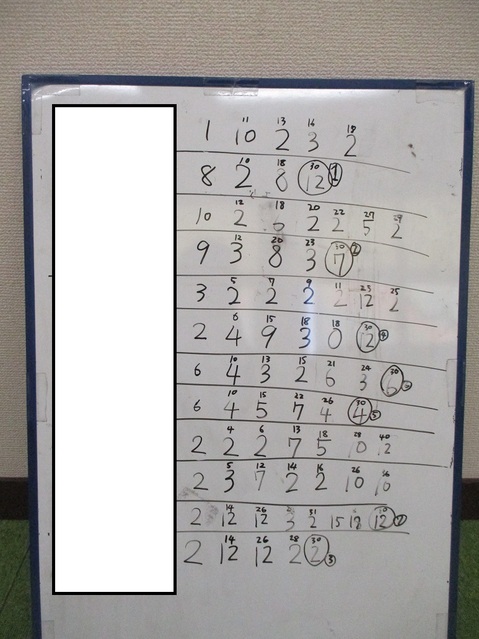 11 13 16 19
1 10 2 3 2
10 18 30
8 2 8 12 1
12 18 20 22 27 29
10 2 2 2 5 2
12 20 23 30
9 3 8 3 7 2
5 7 9 11 23 25
3 2 2 2 2 12 2
6 15 18 18 30
2 4 9 3 0 12 4
10 13 15 21 24 30
6 4 3 2 6 3 6
10 15 22 26 30
6 4 5 7 4 4 5
4 6 13 18 28 40
2 2 2 7 5 10 12
5 12 14 16 26
2 3 7 2 2 10
14 26 30
2 12 12 2 15 12 2
14 26 28 30
2 12 12 2 2 3